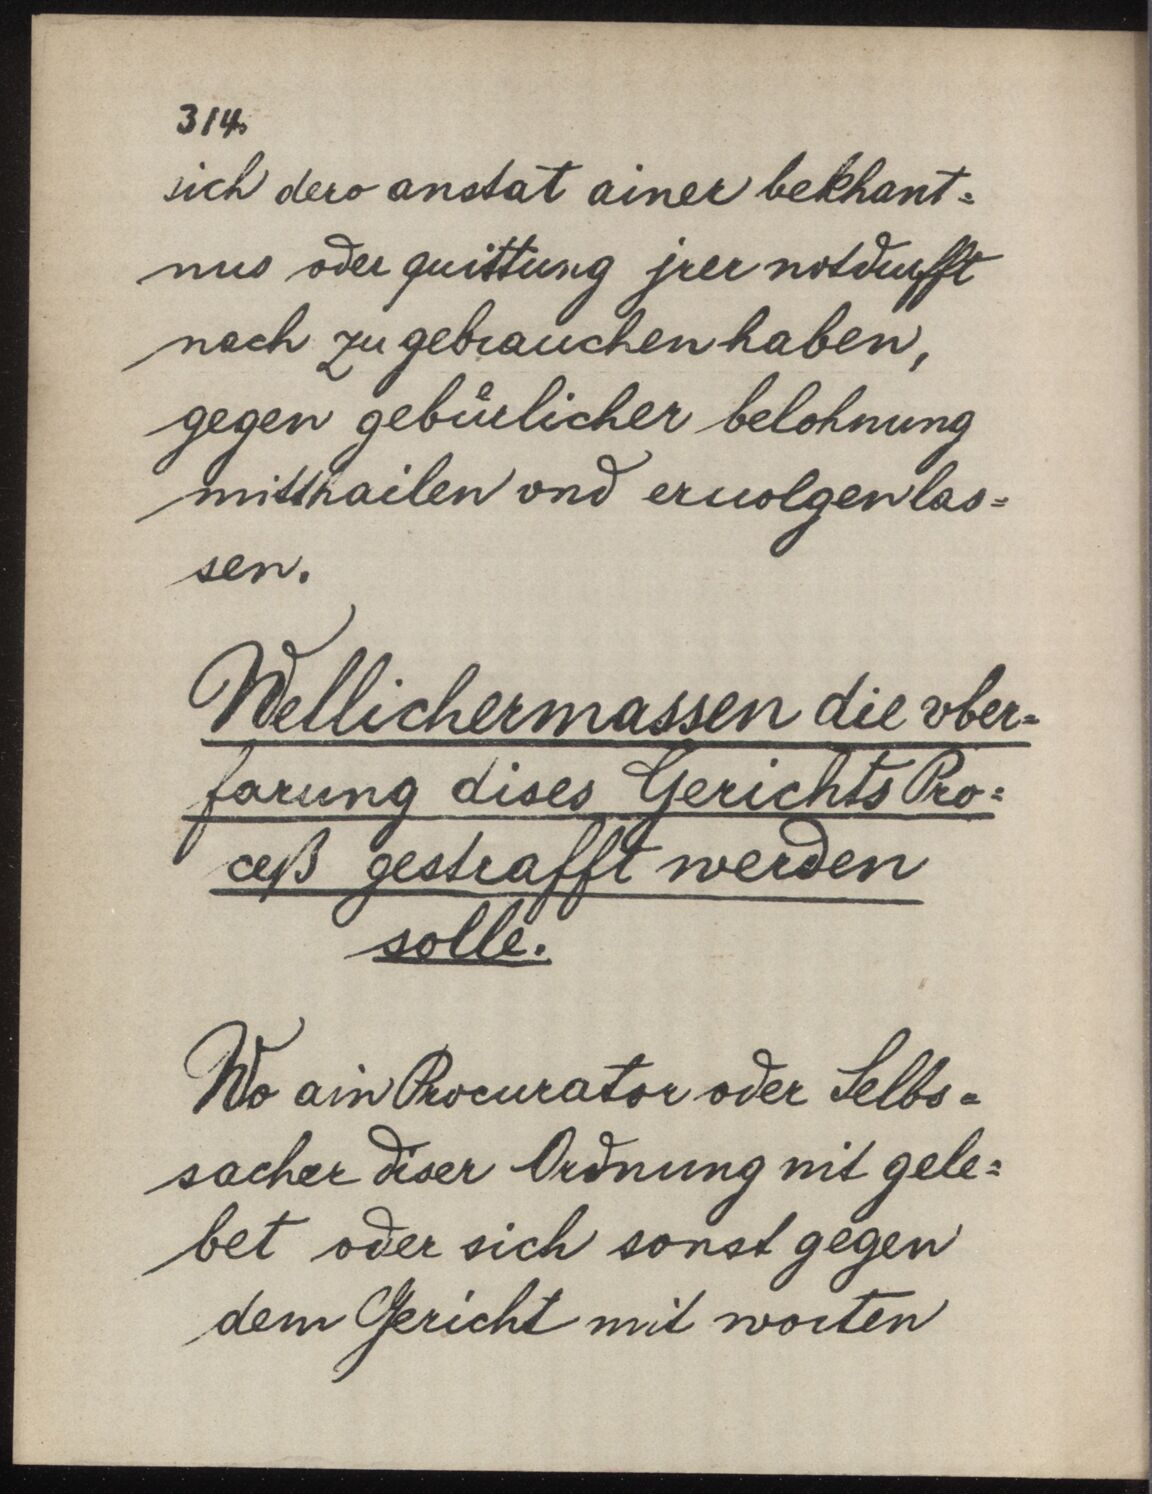 314.
sich dero anstat ainer bekhant=
nus oder quittung jrer notdurfft
nach zu gebrauchen haben,
gegen gebürlicher belohnung
mitthailen vnd eruolgen las=
sen.
Wellichermassen die vber=
farung dises Gerichts Pro=
ceß gestrafft werden
solle.
Wo ain Procurator oder Selbs=
sacher diser Ordnung nit gele=
bet oder sich sonst gegen
dem Gericht mit worten